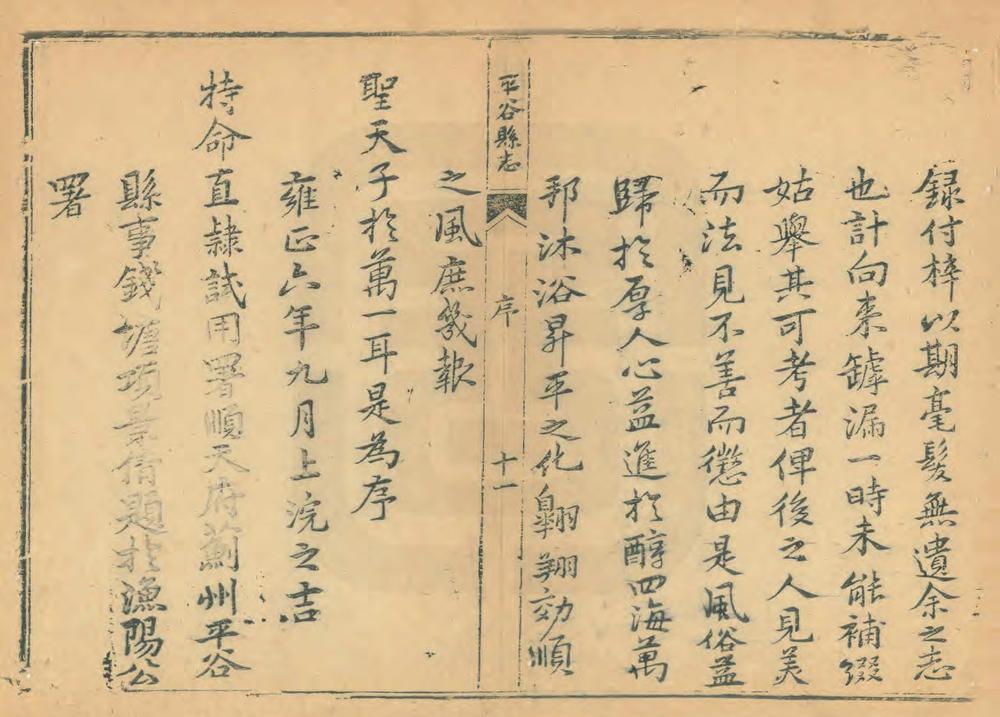 録付梓以期毫髮無遺余之志
也計向来罅漏一時未能補缀
姑舉其可考者俾後之人見美
而法見不善而懲由是風俗益
歸於厚人心益進於醇四海萬
邦沐浴昇平之化翺翔効順
平谷縣志
序
十一
之風庶幾報
聖天子於萬一耳是為序
雍正六年九月上浣之吉
特命直隸試用署順天府薊州平谷
縣事錢塘項景倩題於漁陽公
署